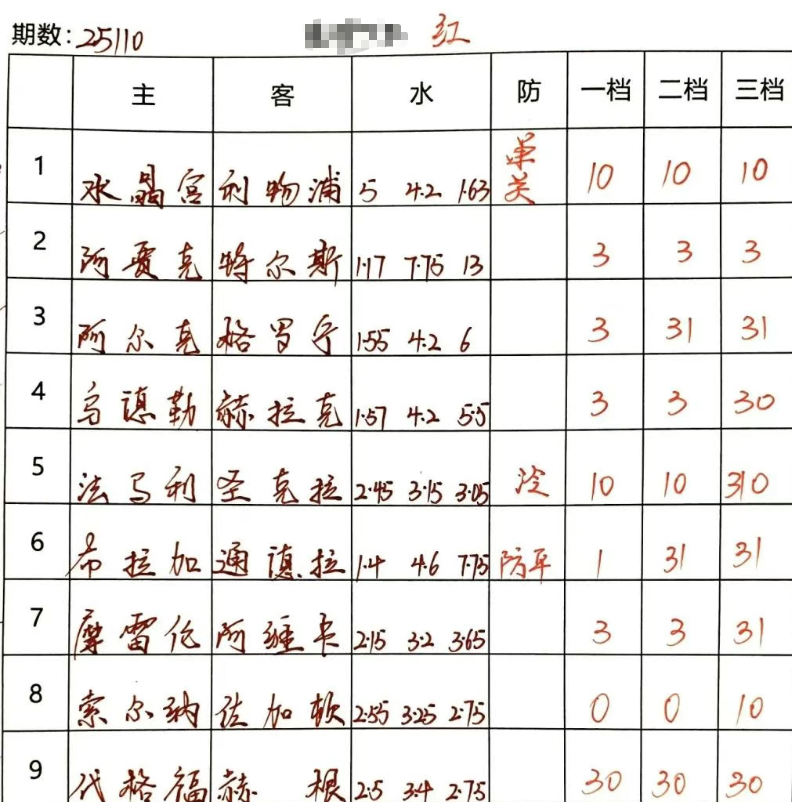 期数:25110 红
主 客 水 防 一档 二档 三档
1 水晶宫 利物浦 5 4.2 1.63 单关 10 10 10
2 阿贾克 特尔斯 1.17 7.75 13 3 3 3
3 阿尔克 格罗宁 1.55 4.2 6 3 31 31
4 乌德勒 赫拉克 1.57 4.2 5.5 3 3 30
5 法马利 圣克拉 2.45 3.15 3.05 冷 10 10 310
6 布拉加 通德拉 1.4 4.6 7.75 防平 1 31 31
7 摩雷伦 阿维卡 2.15 3.2 3.65 3 3 31
8 索尔纳 佐加顿 2.55 3.25 2.75 0 0 10
9 代格福 赫根 2.5 3.4 2.75 30 30 30